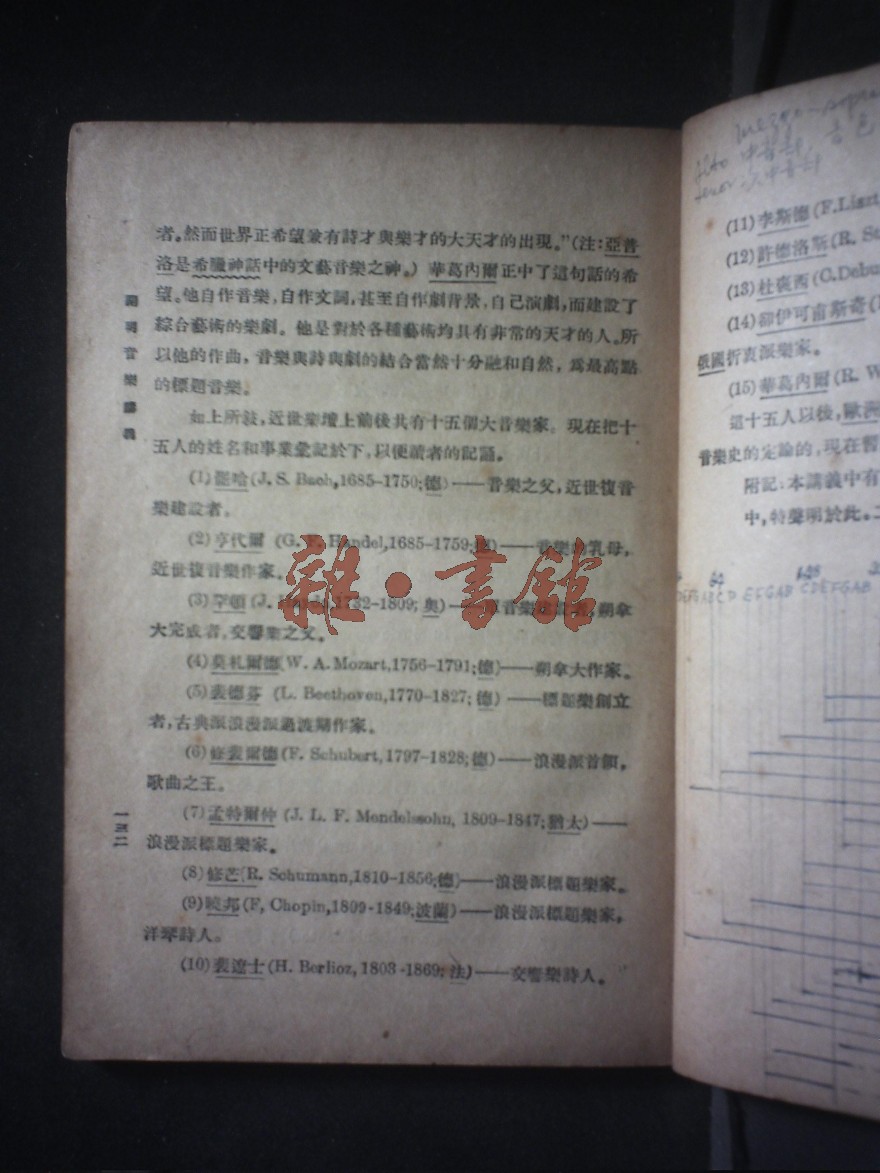 者。然而世界正希望兼有詩才與樂才的大天才的出現。”(注:亞普
洛是希臘神話中的文藝音樂之神。) 華葛內爾正中了這句話的希
望。他自作音樂,自作文詞,甚至自作劇背景,自己演劇,而建設了
綜合藝術的樂劇。他是對於各種藝術均具有非常的天才的人。所
以他的作曲,音樂與詩與劇的結合當然十分融和自然,為最高點
的標題音樂。
如上所敍,近世樂壇上前後共有十五個大音樂家。現在把十
五人的姓名和事業彙記於下,以便讀者的記誦。
(1) 罷哈(J. S. Bach,1685-1750;德)——音樂之父,近世復音
樂建設者。
(2) 亨代爾 (G. F. Handel,1685-1759;德)——音樂之乳母,
近世復音樂作家。
(3) 罕頓 (J. 1732-1809; 奧)——音樂建設者,朔拿
大完成者,交響樂之父。
(4) 莫札爾德(W. A. Mozart,1756-1791;德)——朔拿大作家。
(5) 裴德芬 (L. Beethoven,1770-1827; 德)——標題樂創立
者,古典派浪漫派過渡期作家。
(6) 修裴爾德(F. Schubert,1797-1828;德)——浪漫派首領,
歌曲之王。
(7) 孟特爾仲 (J. L. F. Mendelssohn, 1809-1847;猶太)——
浪漫派標題樂家。
(8) 修芒(R. Schumann,1810-1856;德)——浪漫派標題樂家。
(9) 曉邦(F, Chopin,1899-1849;波蘭)——浪漫派標題樂家,
洋琴詩人。
(10) 裴遼士(H. Berlioz, 1803-1869; 法)——交響樂詩人。
開明音樂講義
一三二
雜·書館
mezzo-sopra
Alto 中音部, 音色
tenor 次中音部
(11) 李斯德(F.Liszt,
(12) 許德洛斯(R. St
(13) 杜裴西(C.Debu
(14) 斯奇(
俄國折衷派樂家。
(15) 華葛內爾(R. W
這十五人以後,歐洲
音樂史的定論的,現在暫
附記:本講義中有
中,特聲明於此。
64 128
CDEFGAB